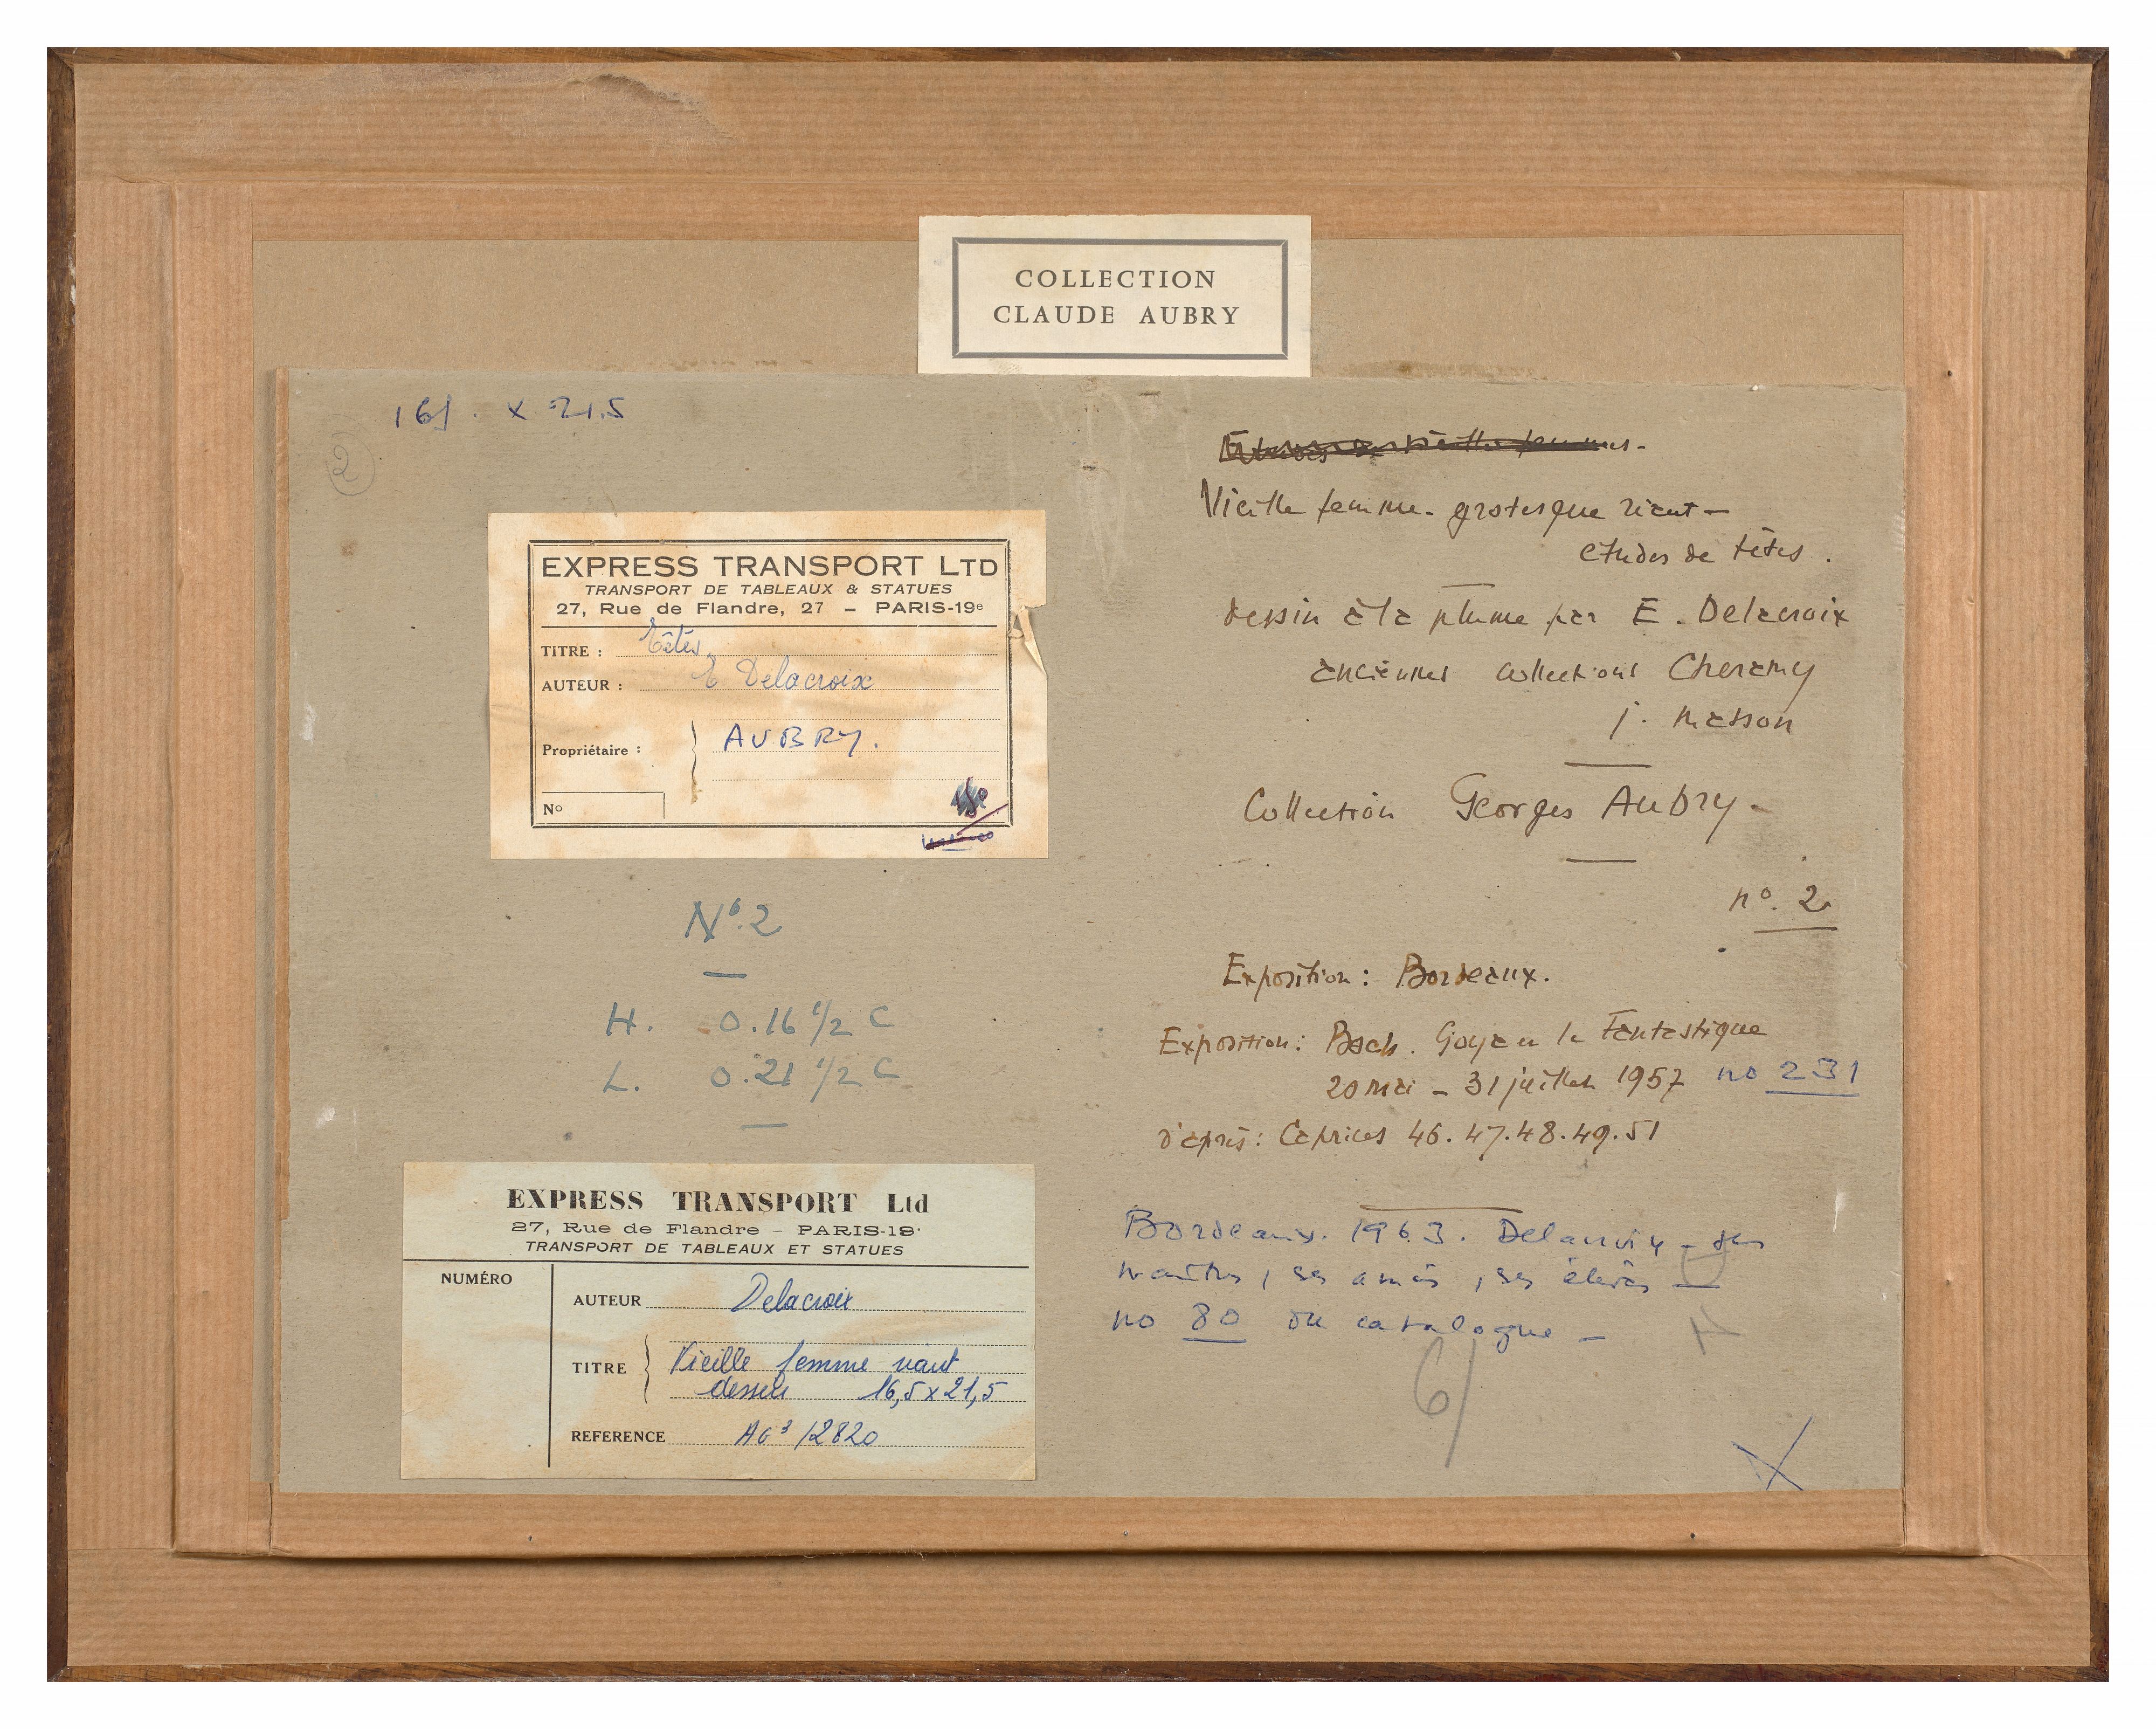 COLLECTION
CLAUDE AUBRY
165 . x 21.5
2
EXPRESS TRANSPORT LTD
TRANSPORT DE TABLEAUX & STATUES
27, Rue de Flandre, 27 – PARIS-19e
TITRE : Têtes
AUTEUR : E Delacroix
Propriétaire : AUBRY.
No
No. 2
H. 0.16 1/2 C
L. 0.21 1/2 C
EXPRESS TRANSPORT Ltd
27, Rue de Flandre – PARIS-19e
TRANSPORT DE TABLEAUX ET STATUES
NUMÉRO
AUTEUR Delacroix
TITRE Vieille femme riant
dessin 16,5 x 21,5
REFERENCE AG3 12820
Etudes de vieilles femmes -
Vieille femme - grotesque riant -
etudes de têtes .
dessin à la plume par E. Delacroix
anciennes collections Cheramy
j. Masson
Collection Georges Aubry -
no. 2
Exposition : Bordeaux.
Exposition : Bosch. Goya et le Fantastique
20 mai – 31 juillet 1957 no 231
d'après : Caprices 46. 47. 48. 49. 51
Bordeaux. 1963. Delacroix - ses
maîtres, ses amis, ses élèves —
no 80 du catalogue -